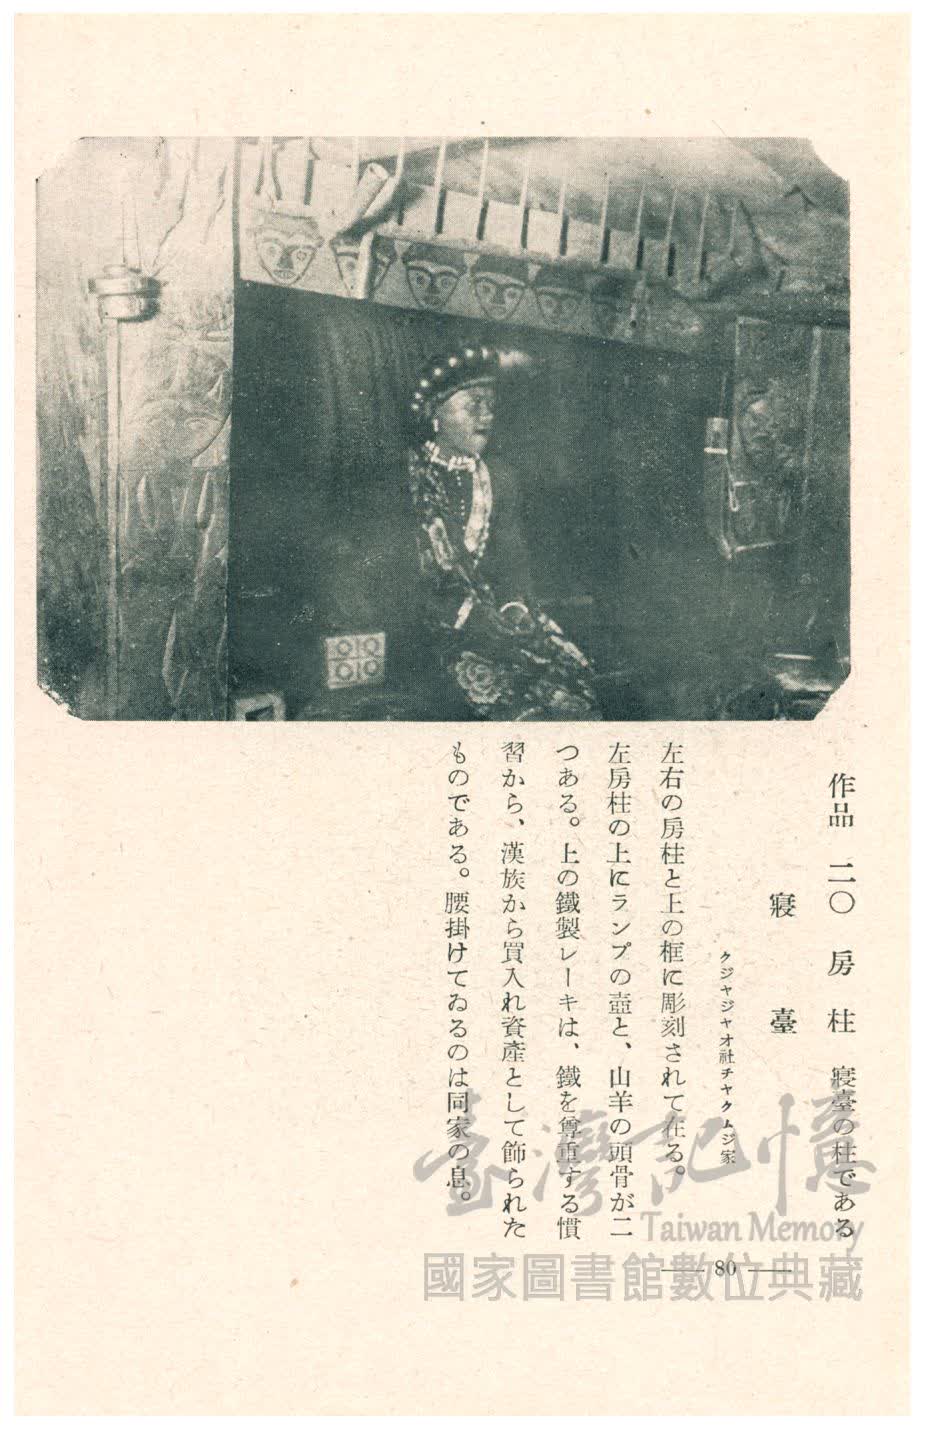 作品 二〇 房柱 寢臺の柱である
寢臺
クジャジャオ社チャクムジ家
左右の房柱と上の框に彫刻されて在る。
左房柱の上にランプの壺と、山羊の頭骨が二
つある。上の鐵製レーキは、鐵を尊重する慣
習から、漢族から買入れ資產として飾られた
ものである。腰掛けてゐるのは同家の息。
80
臺灣記憶
Taiwan Memory
國家圖書館數位典藏